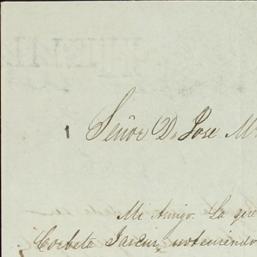 1 Señor D. Jose M
Mi Amigo. La que
Corbeta Javier, no teniendo